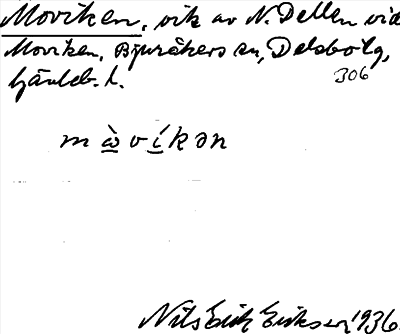 Moviken, vik av N. Dellen vid
Moviken, Bjuråkers sn, Delsbo tg,
Gävleb. l.
306
m à̲ v í̲ k ə n
Nils Erik Eriksson 1936.